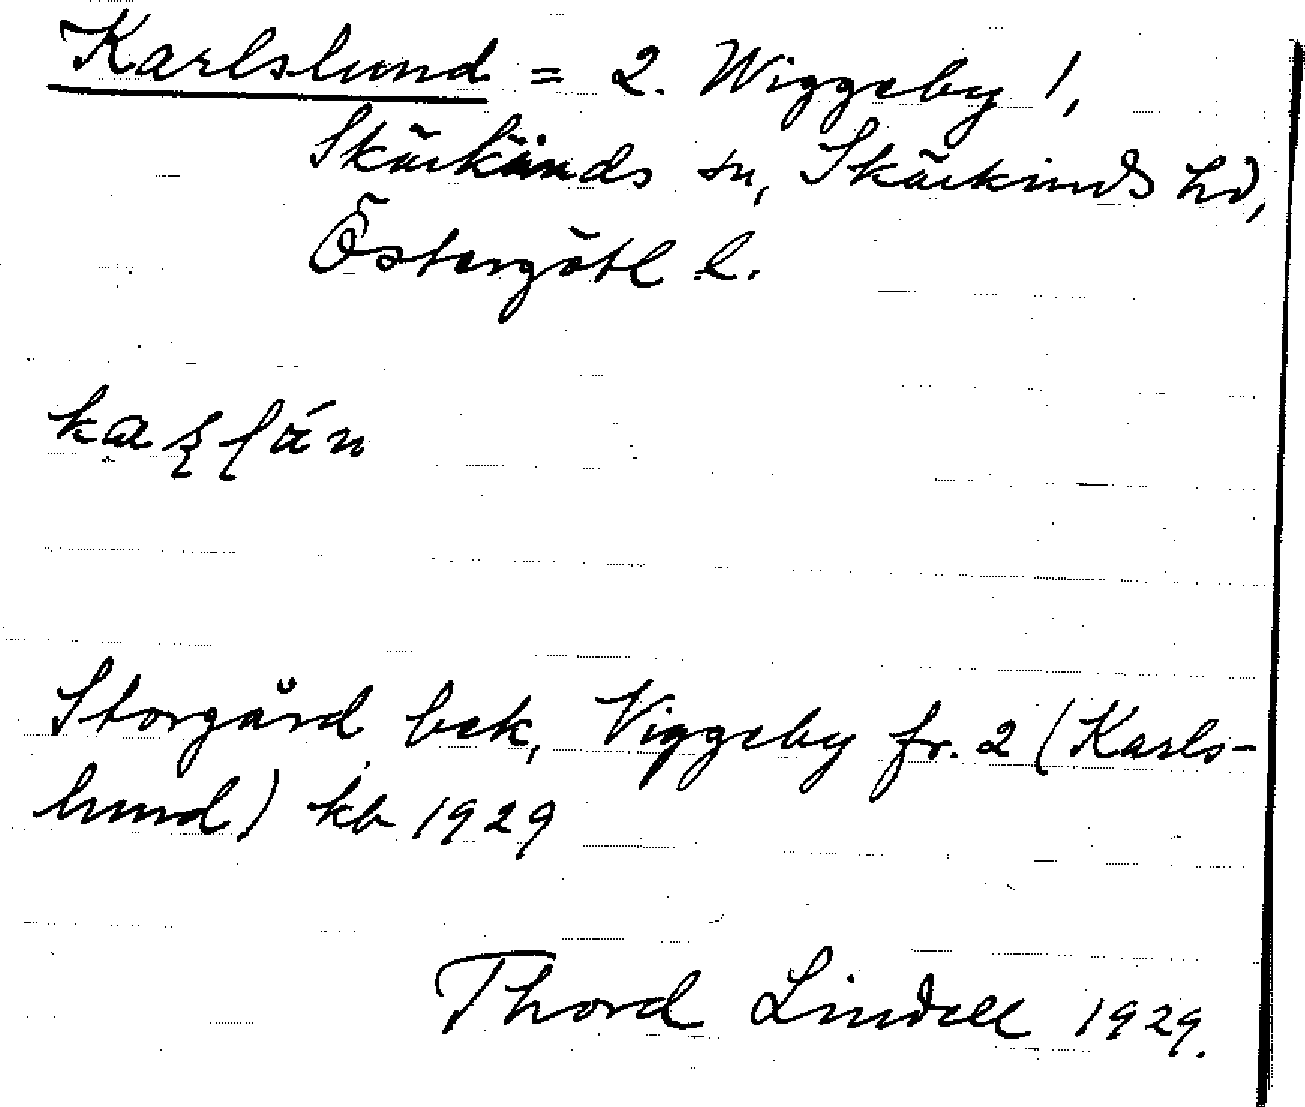 Karlslund = 2. Wiggeby 1,
Skärkinds sn, Skärkinds hd,
Östergötl l.
Storgård bek, Viggeby fr. 2 (Karls-
lund) kb 1929
Thord Lindell 1929.